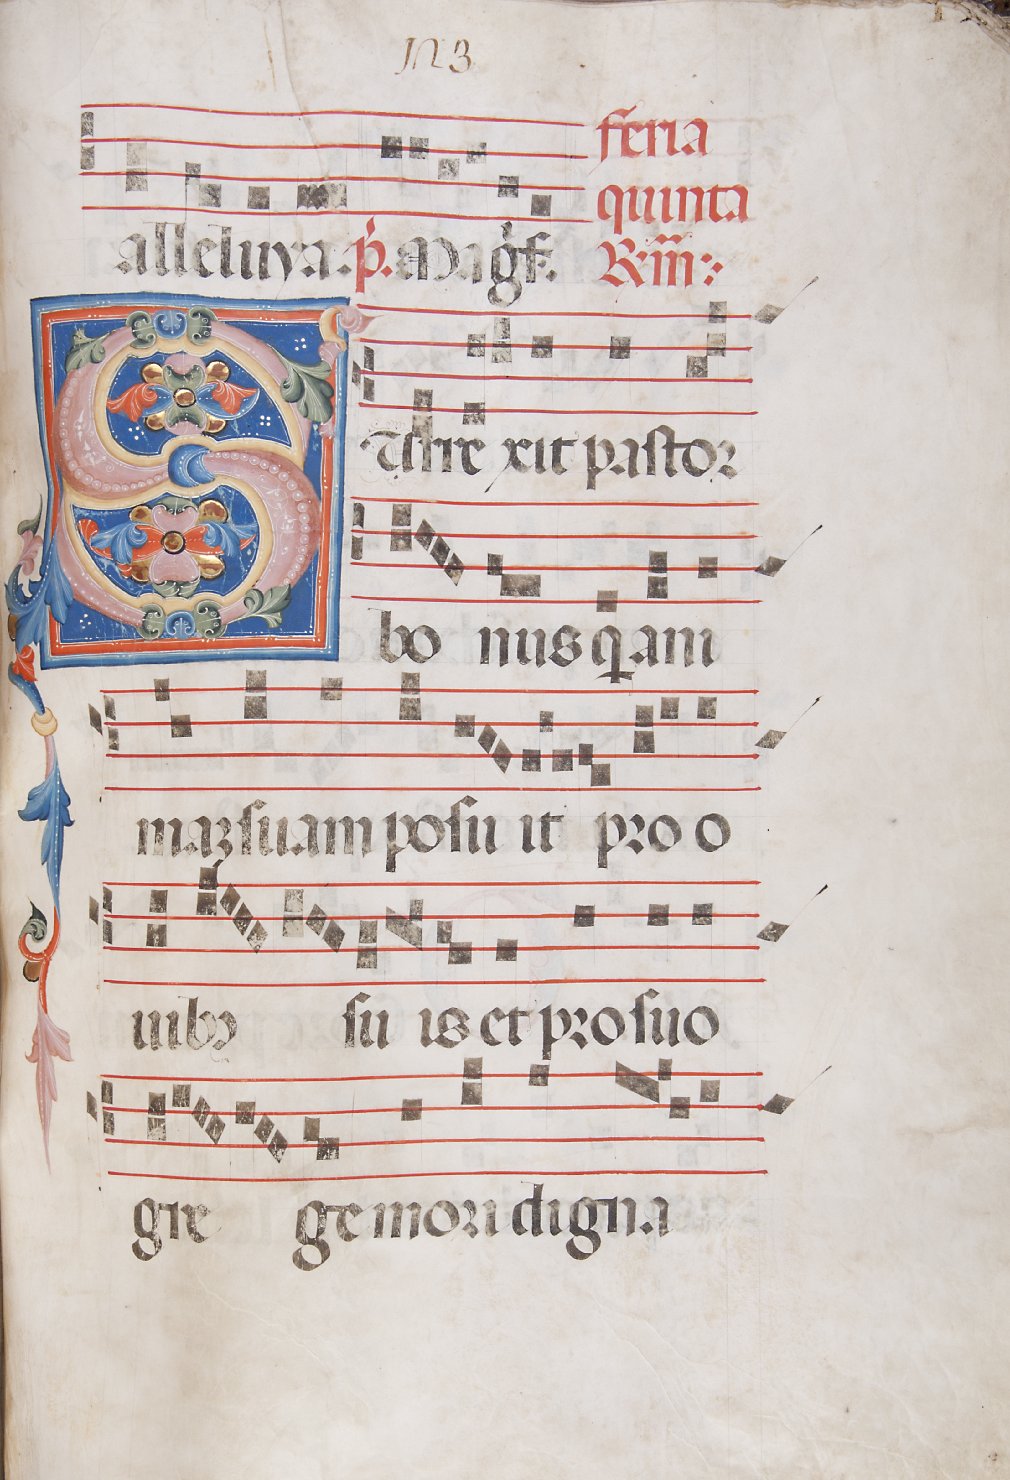 123
feria
quinta
alleluya. p. Magf. R. iii.
Surre xit pastor
bo nus q̲ am
maz suam posu it pro o
uibꝫ su is et pro suo
gre ge mori digna